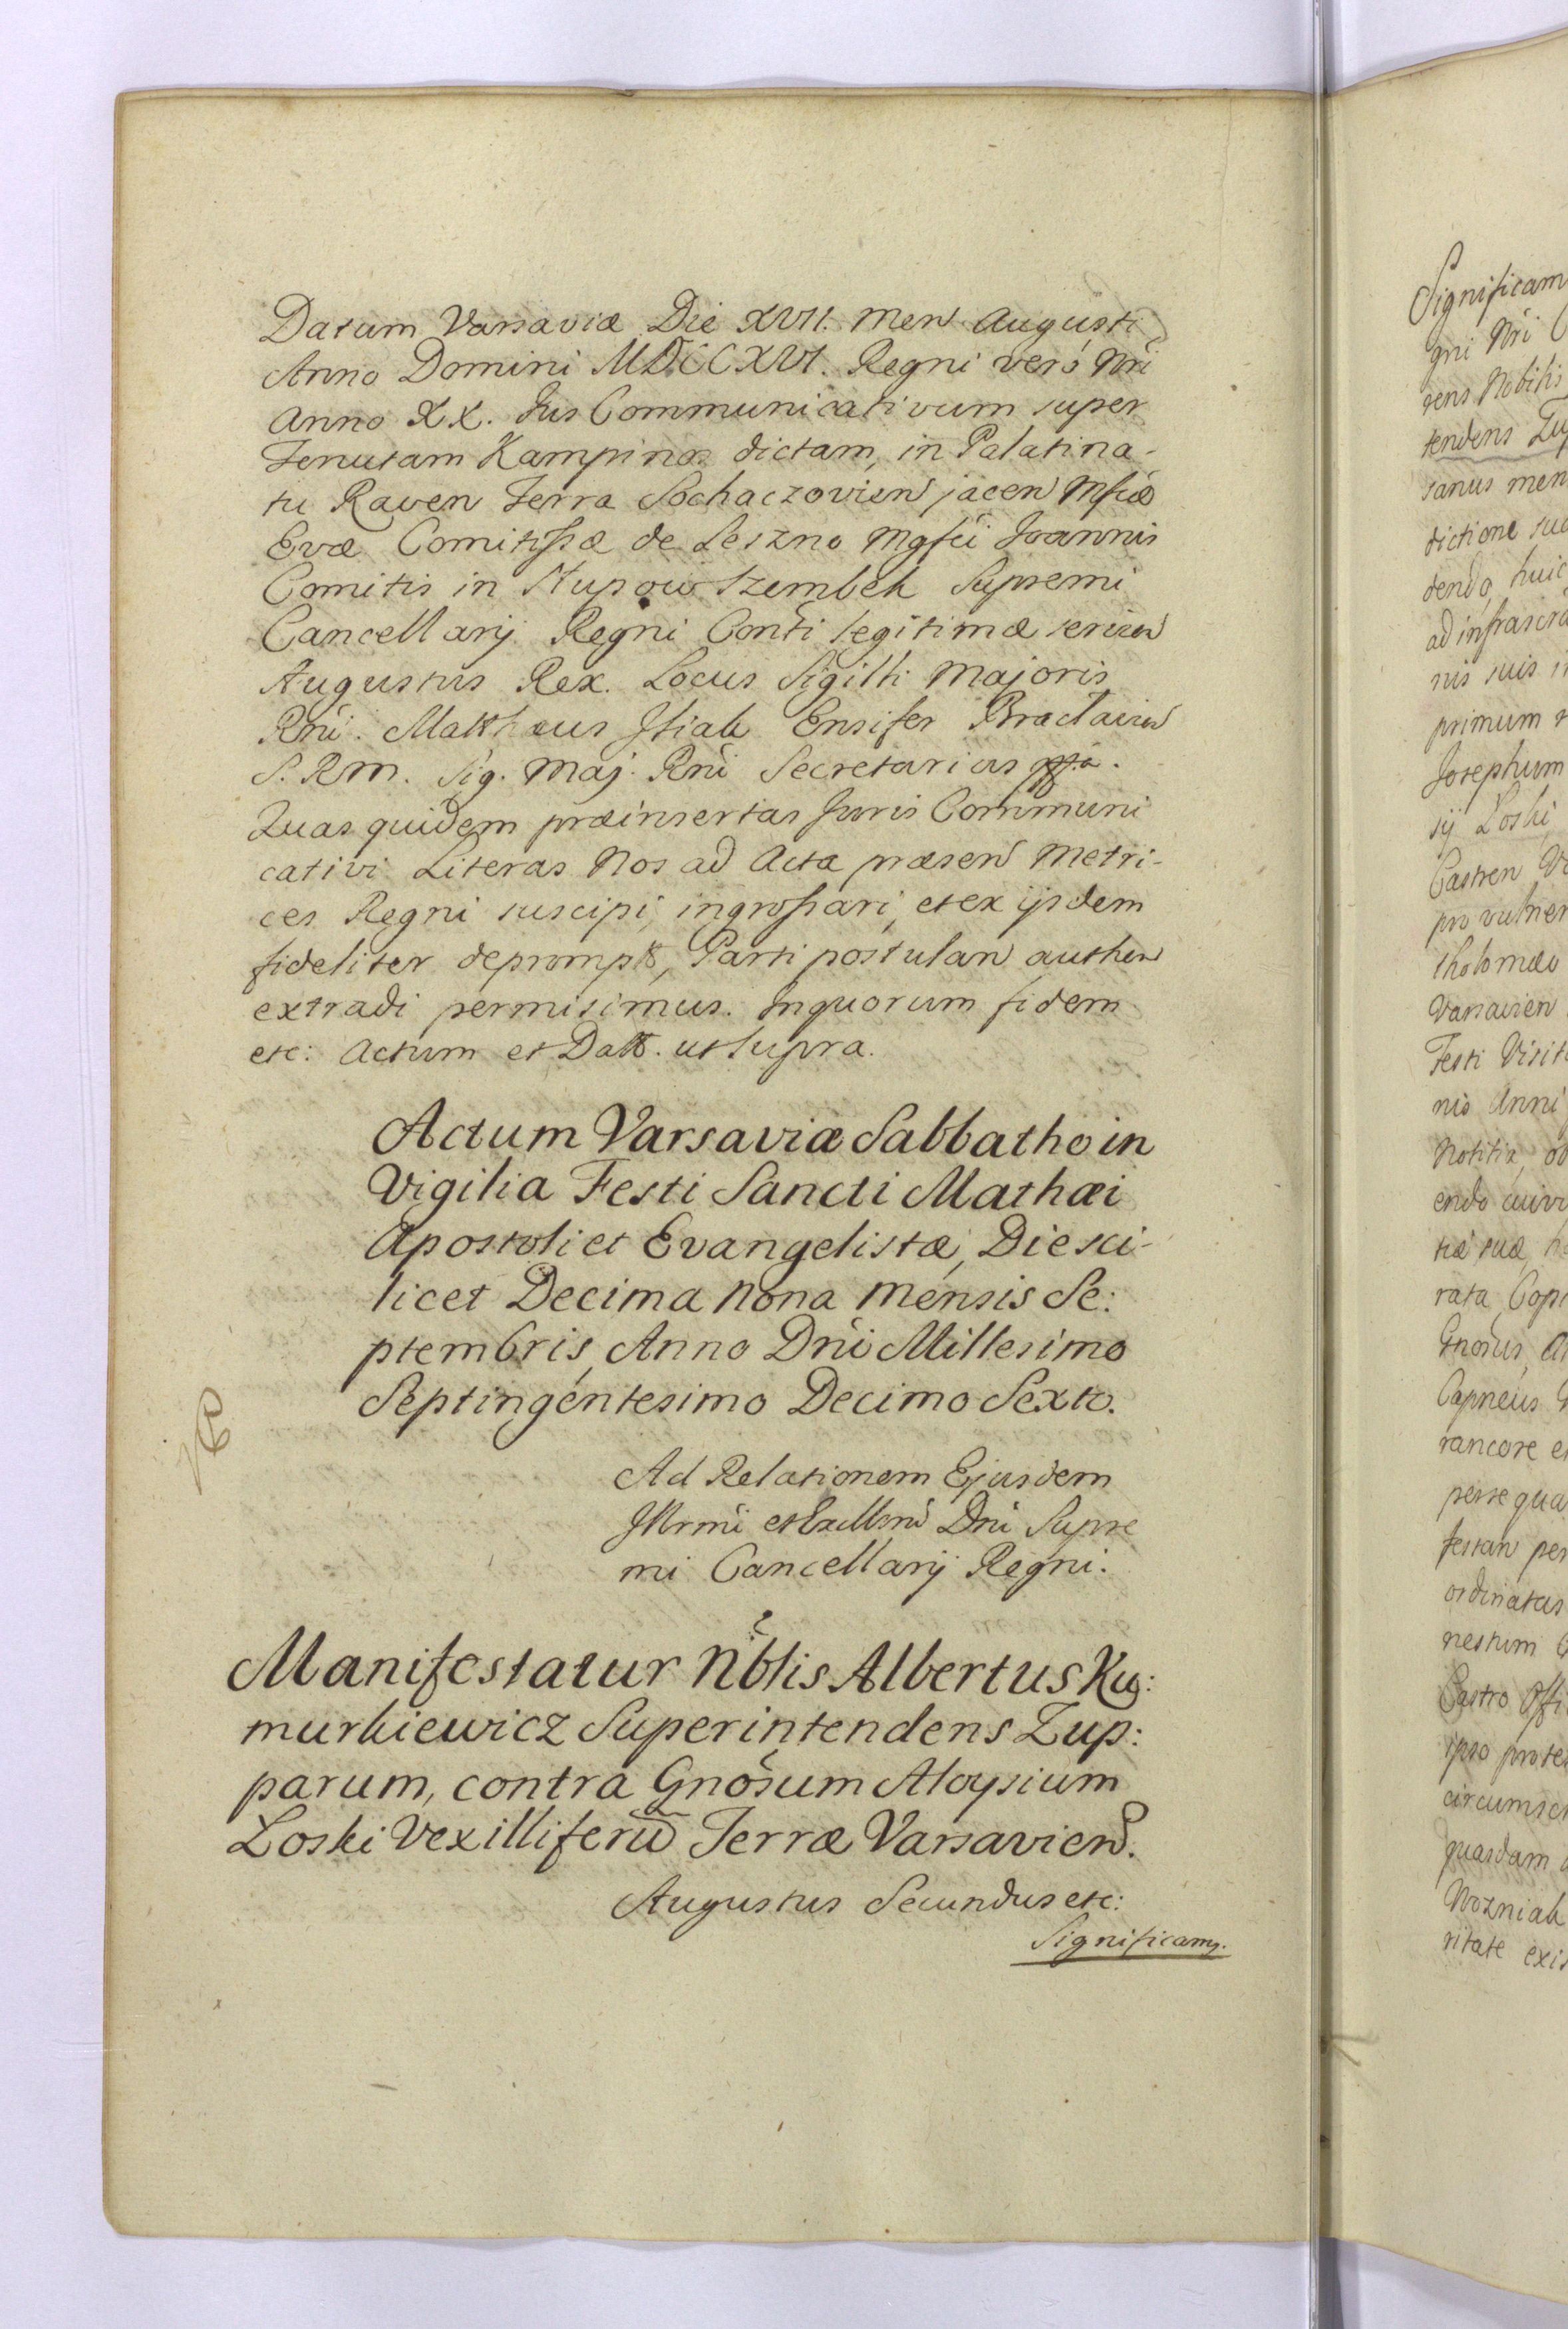 Datum Varsaviæ Die XVII. Men Augusti
Anno Domini MDCCXVI. Regni verò Nri
Anno XX. Jus Communicativum super
Tenutam Kampinos dictam, in Palatina-
tu Raven Terra Sochaczovien jacen Mfcæ
Evæ Comitissæ de Leszno Mgfci Joannis
Comitis in Słupow Szembek Supremi
Cancellarij Regni Conti legitimæ servien
Augustus Rex. Locus Sigilli Majoris
Rni. Matthæus Ensifer Braclavien
S. R M. Sig. Maj. Rni Secretarius
Quas quidem præinsertas Juris Communi
cativi Literas Nos ad Acta præsen Metri-
ces Regni suscipi, ingrossari, et ex ijsdem
fideliter deprompt, Parti postulan authen
extradi permisimus. In quorum fidem
etc: Actum et Datt. ut supra.
Actum Varsaviæ Sabbatho in
Vigilia Festi Sancti Mathæi
Apostoli et Evangelistæ, Die sci-
licet Decima Nona Mensis Se:
ptembris, Anno Dni Millesimo
Septingentesimo Decimo Sexto.
Ad Relationem Ejusdem
Illrmi et Excllmi Dni Supre
mi Cancellarij Regni.
Manifestatur Nblis Albertus Ku:
murkiewicz Superintendens Zup:
parum, contra Gnosum Aloysium
Loski Vexilliferu Terræ Varsavien.
Augustus Secundus etc:
Significamy.
Significam
gni Nri
rens Nobilis
tendens Zup
sanus men
dictione suc
dendo, huic
ad infrascra
nis suis i
primum
Josephum
sij Loski
Castren Va
pro vulner
tholomæo
Varsavien
Festi Visit
nio Anni
Notitia, ob
endo cuivi
tiæ suæ,
rata Copi
Gnosus, A
Capneus
rancore e
persequa
festan per
ordinatas
nestum
Castro Offi
ipso protes
circumscr
quasdam
Wozniak
ritate exis